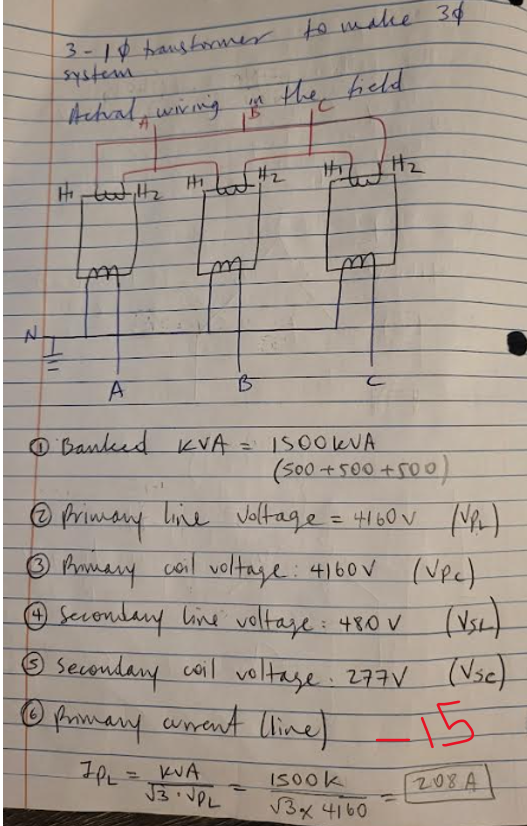 3-1φ transformer to make 3φ
system
Actual wiring in the field
A B C
H1 H2 H1 H2 H1 H2
N
A B C
① Banked KVA = 1500KVA
(500+500+500)
② Primary line voltage = 4160V (VPL)
③ Primary coil voltage: 4160V (VPC)
④ Secondary line voltage: 480V (VSL)
⑤ Secondary coil voltage: 277V (VSC)
⑥ Primary current (line) -15
IPL = KVA / √3·VPL = 1500K / √3×4160 = 208A